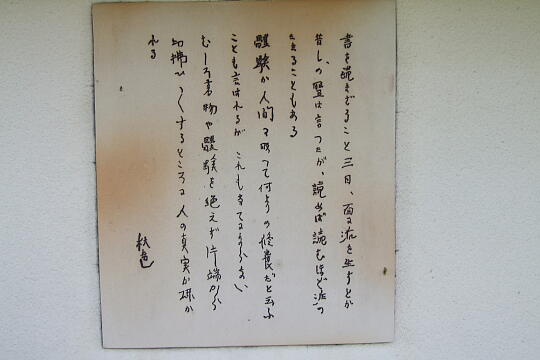 書を読まざること三日、面に垢を生ずとか
昔しの聖は言つたが、読めば読むほど垢の
たまることもある
體験が人間に取つて何よりの修養だと云ふ
ことも言はれるが これも当てにならない
むしろ書物や體験を絶えず片端から
切拂ひ〱するところに人の真実が研か
れる
秋邨